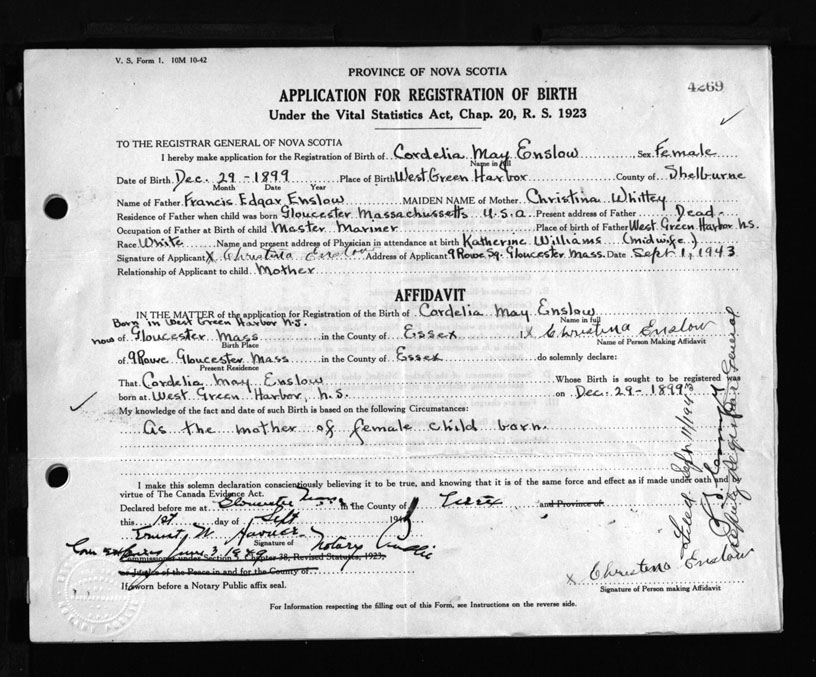 V. S. Form 1. 10M 10-42
PROVINCE OF NOVA SCOTIA
4269
APPLICATION FOR REGISTRATION OF BIRTH
Under the Vital Statistics Act, Chap. 20, R. S. 1923
TO THE REGISTRAR GENERAL OF NOVA SCOTIA
I hereby make application for the Registration of Birth of Cordelia May Enslow, Sex Female
Name in full
Date of Birth Dec. 29-1899 Place of Birth West Green Harbor County of Shelburne
Month Date Year
Name of Father Francis Edgar Enslow MAIDEN NAME of Mother Christina Whittey
Residence of Father when child was born Gloucester Massachussetts U.S.A. Present address of Father Dead
Occupation of Father at Birth of child Master Mariner Place of Birth of father West Green Harbor N.S.
Race White Name and present address of Physician in attendance at birth Katherine Williams (midwife)
Signature of Applicant X Christina Enslow Address of Applicant 9 Rowe Sq. Gloucester Mass. Date Sept 1, 1943
Relationship of Applicant to child Mother
AFFIDAVIT
IN THE MATTER of the application for Registration of the Birth of Cordelia May Enslow
Name in full
Born in West Green Harbor N.S.
now of Gloucester Mass in the County of Essex I, X Christina Enslow
Birth Place Name of Person Making Affidavit
of 9 Rowe Gloucester Mass in the County of Essex do solemnly declare:
Present Residence
That Cordelia May Enslow Whose Birth is sought to be registered was
born at West Green Harbor, N.S. on Dec. 29-1899
My knowledge of the fact and date of such Birth is based on the following Circumstances:
As the mother of female child born.
I make this solemn declaration conscientiously believing it to be true, and knowing that it is of the same force and effect as if made under oath and by
virtue of The Canada Evidence Act.
Declared before me at Gloucester Mass in the County of Essex and Province of
this 1st day of Sept 194
Ernest W.
Signature of
Notary Public
Com expires June 3 1949
Commissioned under Section 3 Chapter 38, Revised Statutes, 1923,
or Justice of the Peace in and for the County of
If sworn before a Notary Public affix seal.
X Christina Enslow
Signature of Person making Affidavit
For Information respecting the filling out of this Form, see Instructions on the reverse side.
Deputy Registrar General